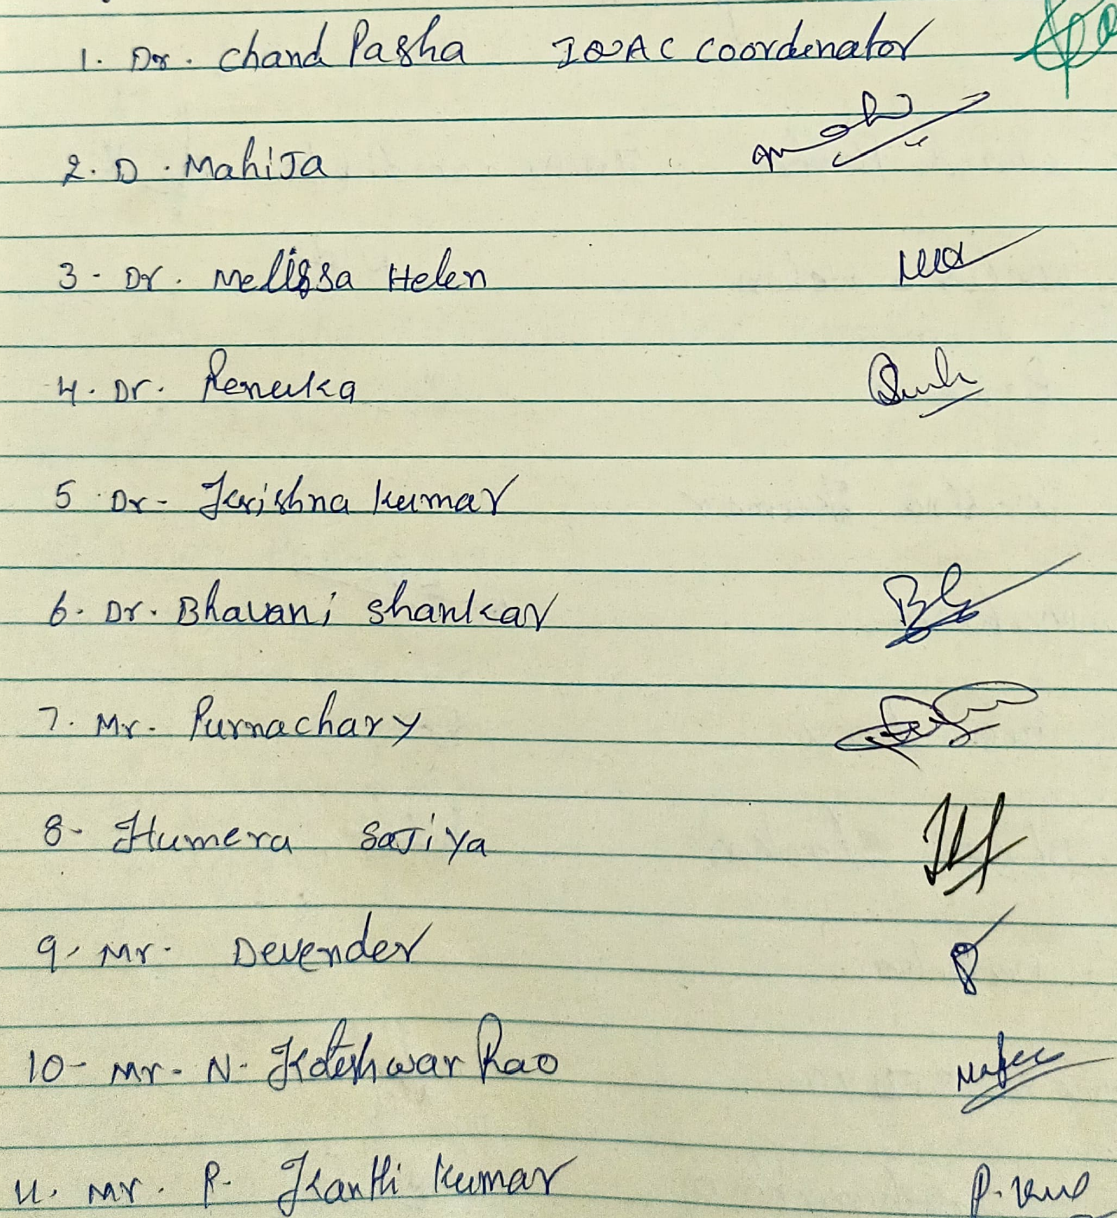 1. Dr. Chand Pasha IQAC Coordenator
2. D. Mahija
3- Dr. Melissa Helen
4. Dr. Renuka
5. Dr- Krishna kumar
6. Dr. Bhavani shankar
7. Mr. Purnachary
8- Humera Sajiya
9. Mr. Devender
10- Mr. N. Koteshwar Rao
11. Mr. P. Kanthi kumar